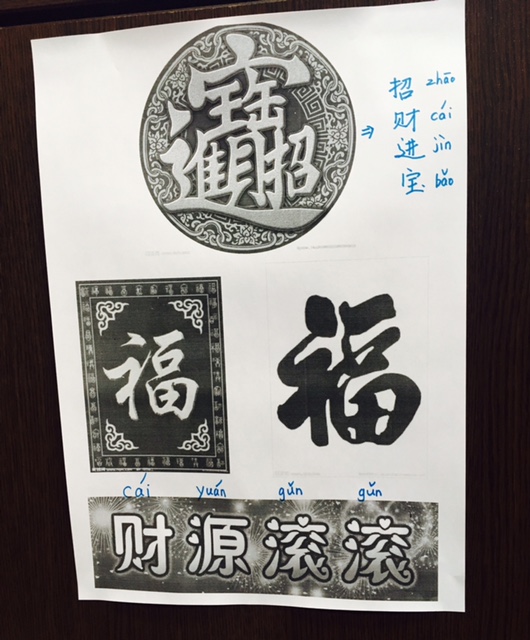 招財進寶
招 zhāo
财 cái
进 jìn
宝 bǎo
福
福
cái yuán gǔn gǔn
财源滚滚